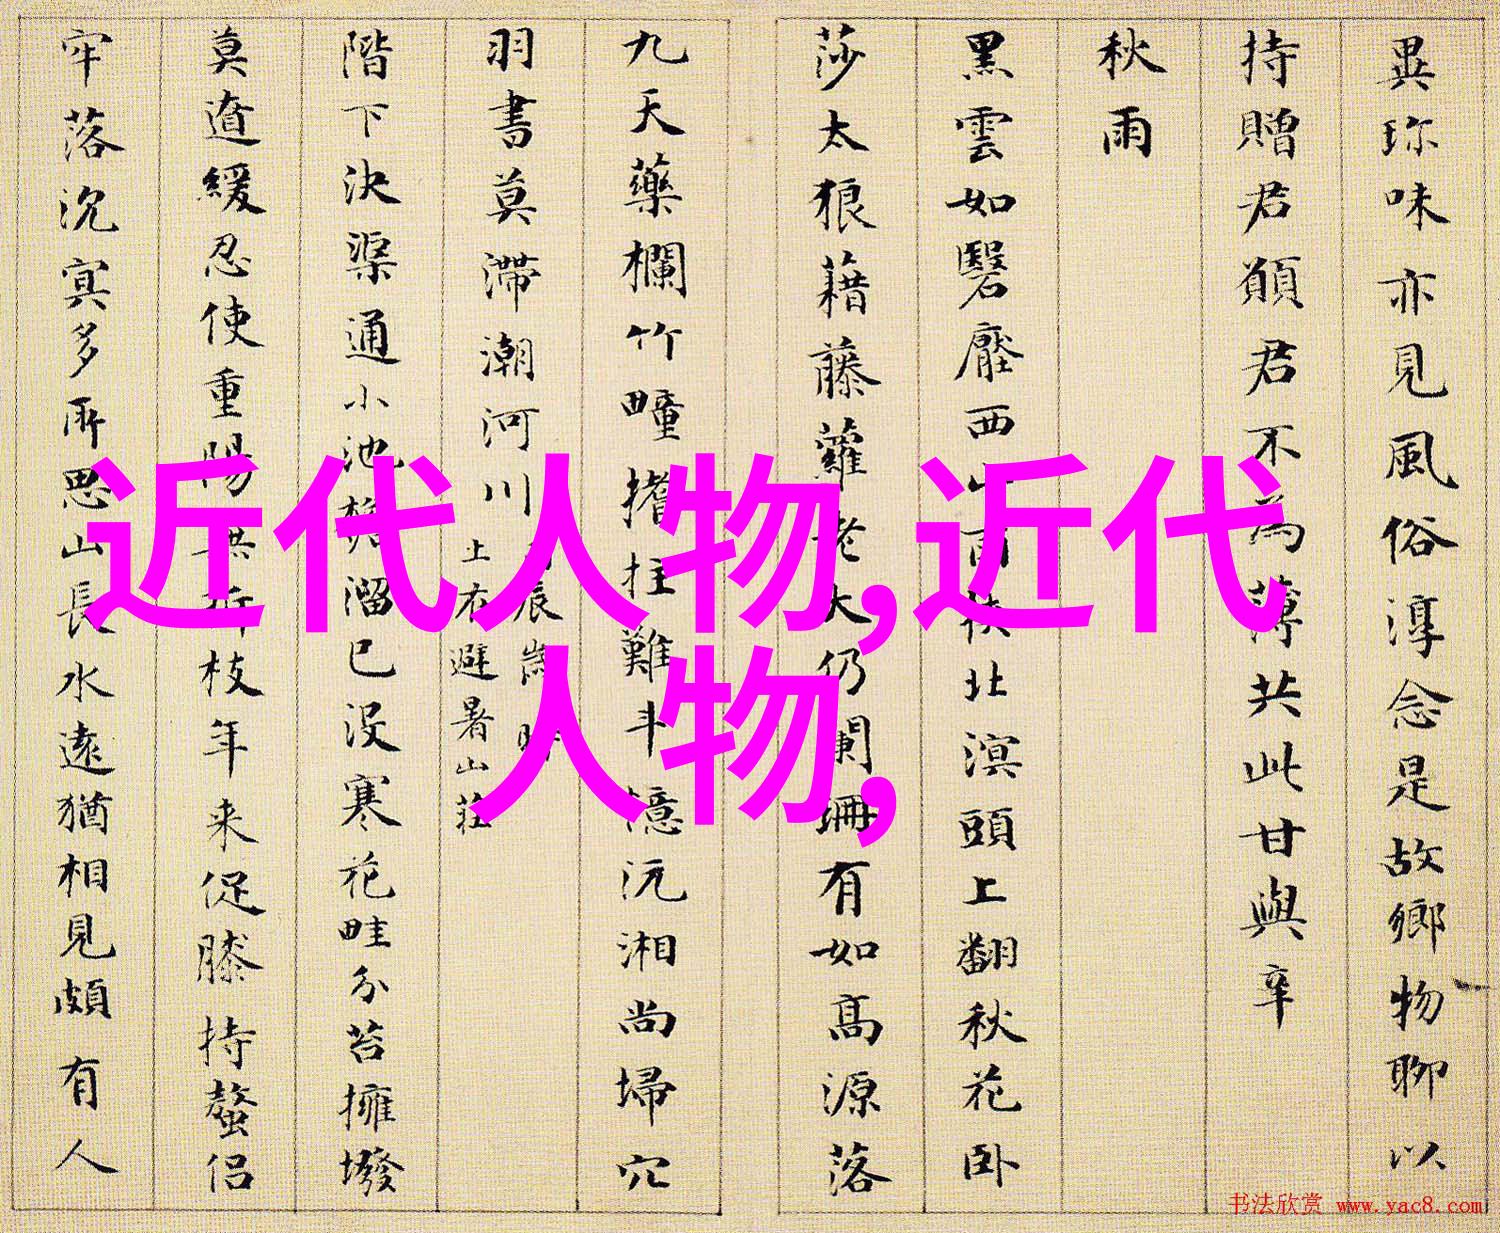 異珎味亦見風俗淳念是故鄉物聊以
持贈君願君不為薄共此甘與辛
秋雨
黑雲如翳壓西山雨挟北溟頭上翻秋花卧
莎太狼藉藤蘿老大仍闌珊有如高源落
九天藥欄竹疃撐拄難斗憶沅湘尚埽穴
羽書莫滯潮河川
辰嵗
上在避暑山莊
階下決渠通小池溜已没寒花畦分苔擁墢
莫遣緩忍使重陽折枝年来促膝持螯侣
牢落沉冥多所思山長水遠猶相見頗有人
近代人物,近代
人物,
书法欣赏 www.yac8.com